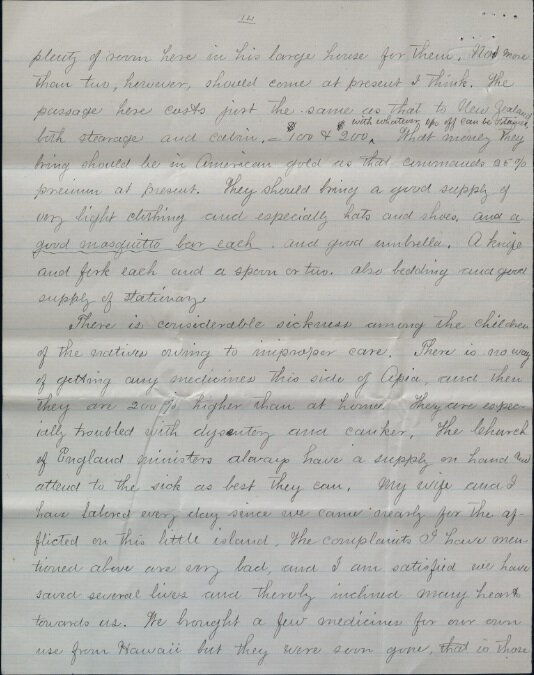 14
plenty of room here in his large house for them. Not more
than two, however, should come at present I think. The
passage here costs just the same as that to New Zealand
with whatever % off can be obtained
both stearage and cabin. = $100 & $200. What money they
bring should be in American gold as that commands 25%
premium at present. They should bring a good supply of
very light clothing and especially hats and shoes, and a
good mosquetto bar each and good umbrella. A knife
and fork each and a spoon or two. also bedding and good
supply of stationary.
There is considerable sickness among the children
of the natives owing to improper care. There is no way
of getting any medicines this side of Apia, and then
they are 200% higher than at home. They are espec-
ially troubled with dysentory and canker. The Church
of England ministers always have a supply on hand and
attend to the sick as best they can. My wife and I
have labored every day since we came nearly for the af-
flicted on this little island. The complaints I have men-
tioned above are very bad, and I am satisfied we have
saved several lives and thereby inclined many hearts
towards us. We brought a few medicines for our own
use from Hawaii but they were soon gone, that is those